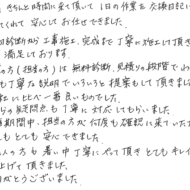 きちんと時間に来て頂いて 1日の作業を交換日記に
くれて 安心してお任せできました。
回診断から工事施工、完成まで丁寧に施工して頂き
満足しております。
の方(担当の方)は無料診断、見積りの段階でお
も丁寧な説明でいろいろと提案もして頂きました
社に比べ一番良いものでした。
らの疑問点も丁寧に対応してもらいました。
期間中、担当の方が何度も確認に来ていた
もとても安心できました。
人の方も暑い中丁寧にやって頂きとてもキレイ
上げて頂きました。
がとうございました。